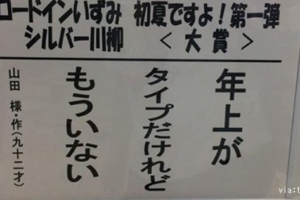 ロードインいずみ 初夏ですよ!第一弾
シルバー川柳 <大賞>
年上が
タイプだけれど
もういない
山田 様・作(九十二才)
via:t